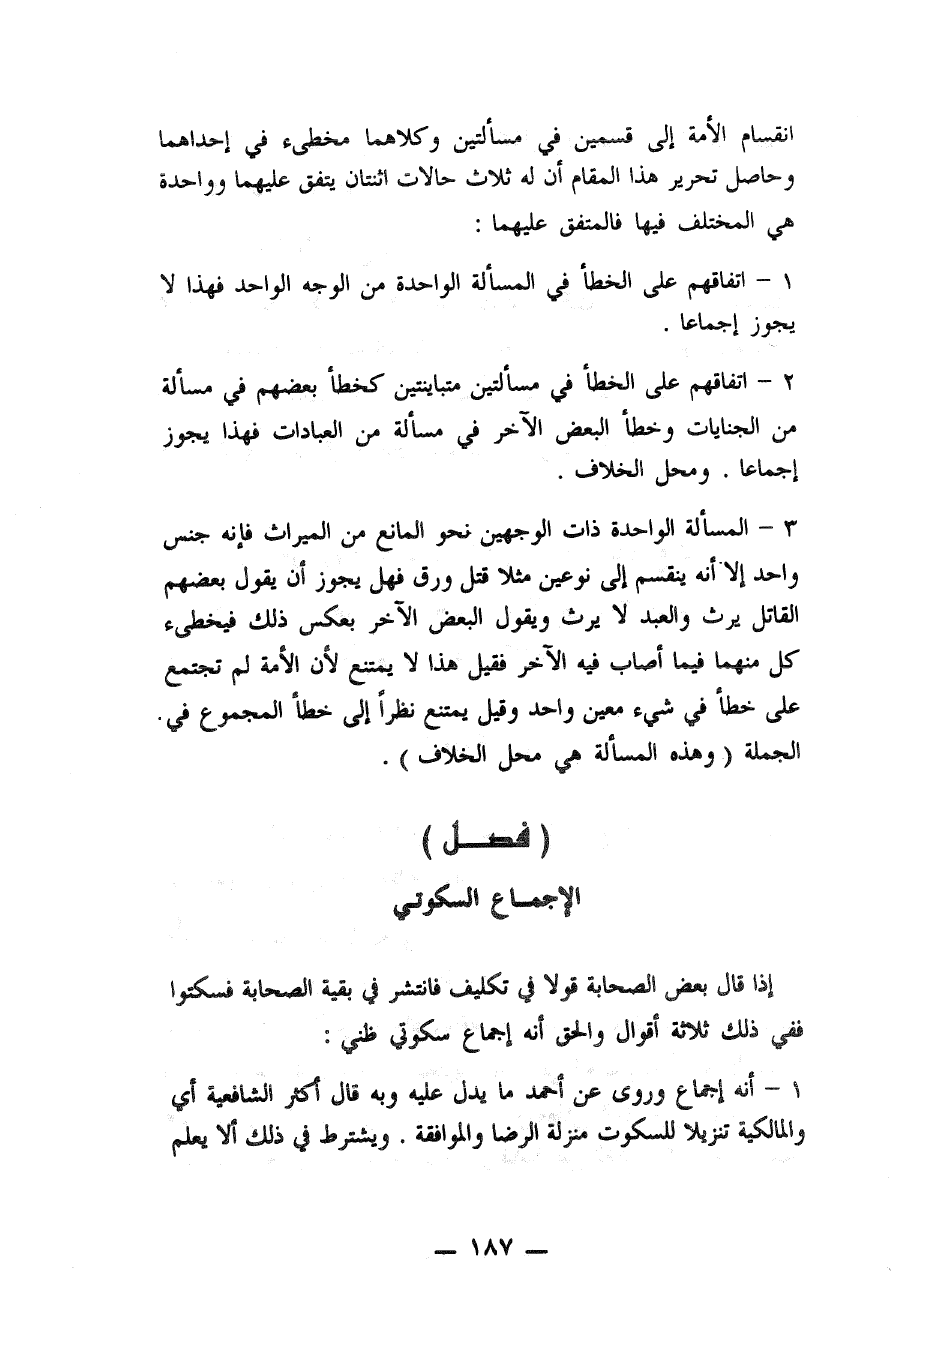 انقسام الأمة إلى قسمين في مسألتين وكلاهما مخطىء في إحداهما
وحاصل تحرير هذا المقام أن له ثلاث حالات اثنتان يتفق عليهما وواحدة
هي المختلف فيها فالمتفق عليهما :
١ – اتفاقهم على الخطأ في المسألة الواحدة من الوجه الواحد فهذا لا
يجوز إجماعا .
٢ – اتفاقهم على الخطأ في مسألتين متباينتين كخطأ بعضهم في مسألة
من الجنايات وخطأ البعض الآخر في مسألة من العبادات فهذا يجوز
إجماعا . ومحل الخلاف .
٣ – المسألة الواحدة ذات الوجهين نحو المانع من الميراث فإنه جنس
واحد إلا أنه ينقسم إلى نوعين مثلا قتل ورق فهل يجوز أن يقول بعضهم
القاتل يرث والعبد لا يرث ويقول البعض الآخر بعكس ذلك فيخطىء
كل منهما فيما أصاب فيه الآخر فقيل هذا لا يمتنع لأن الأمة لم تجتمع
على خطأ في شيء معين واحد وقيل يمتنع نظراً إلى خطأ المجموع في.
الجملة ( وهذه المسألة هي محل الخلاف ) .
( فصــل )
الإجمـاع السكوتـي
إذا قال بعض الصحابة قولا في تكليف فانتشر في بقية الصحابة فسكتوا
ففي ذلك ثلاثة أقوال والحق أنه إجماع سكوتي ظني :
١ – أنه إجماع وروى عن أحمد ما يدل عليه وبه قال أكثر الشافعية أي
والمالكية تنزيلا للسكوت منزلة الرضا والموافقة . ويشترط في ذلك ألا يعلم
— ١٨٧ —